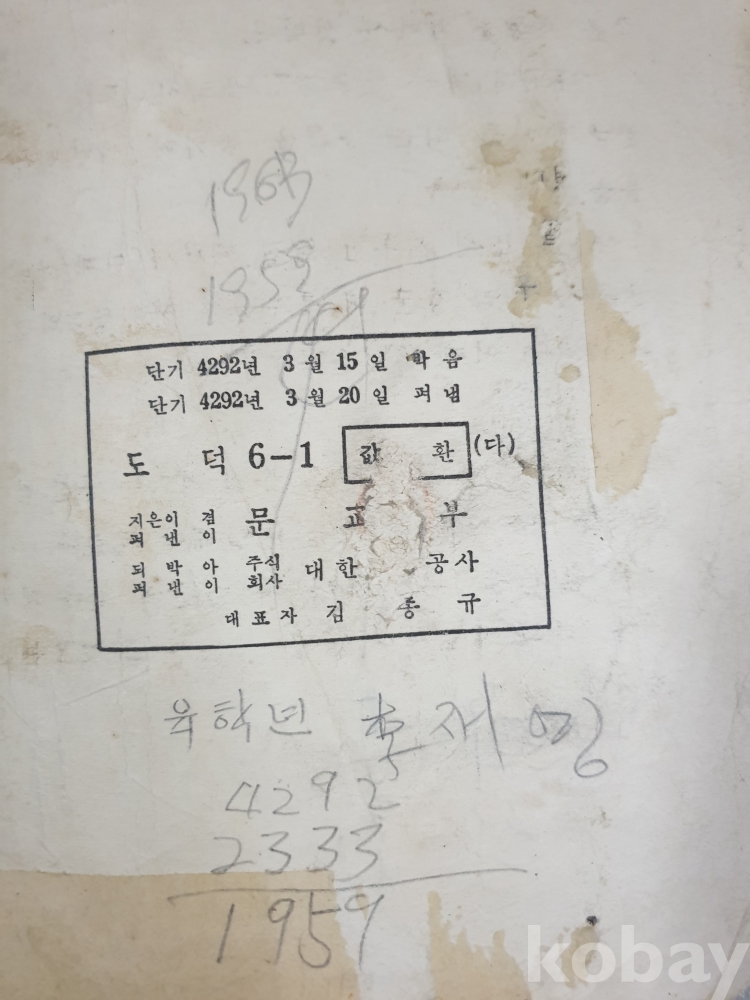 1963
1959
단기 4292년 3월 15일 박음
단기 4292년 3월 20일 펴냄
도 덕 6-1 값 환 (다)
지은이 겸 펴낸이 문 교 부
되박아 펴낸이 주식회사 대한 공사
대표자 김 종 규
육학년 재영
4292
2333
1959
kobay